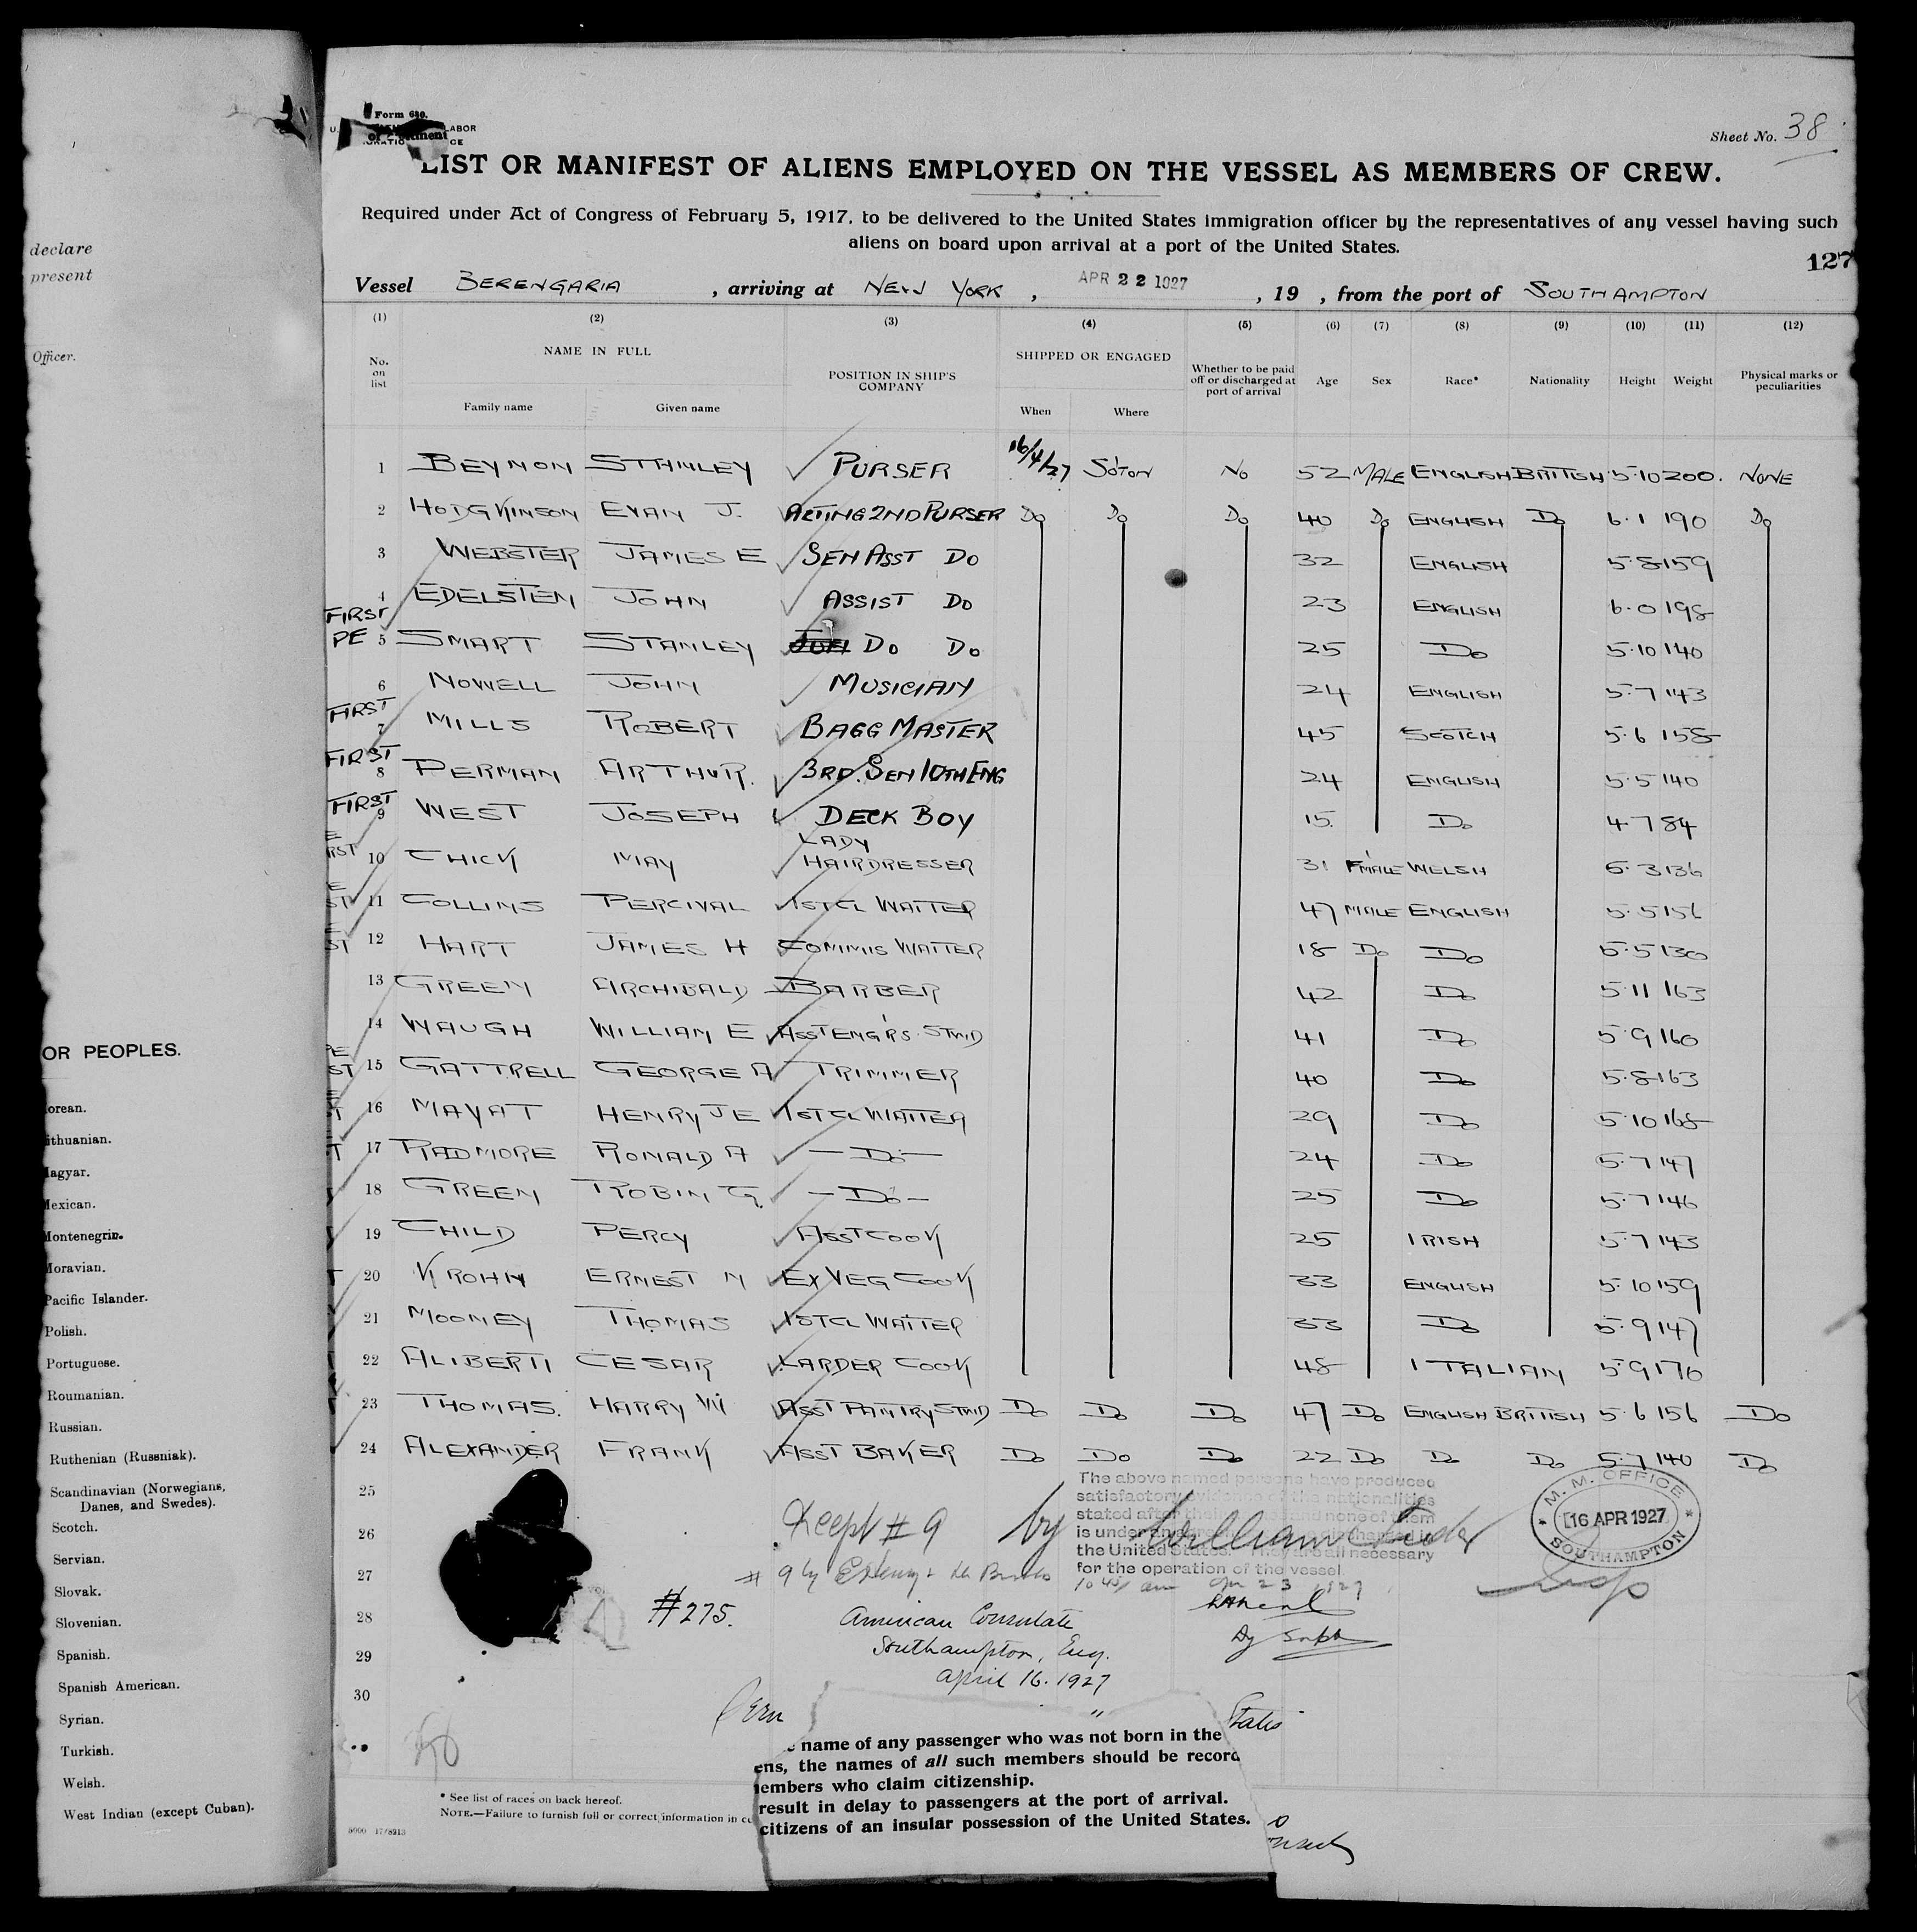 declare
present
Officer.
OR PEOPLES.
orean.
ithuanian.
Magyar.
Mexican.
Montenegrin.
Moravian.
Pacific Islander.
Polish.
Portuguese.
Roumanian.
Russian.
Ruthenian (Russniak).
Scandinavian (Norwegians,
Danes, and Swedes).
Scotch.
Servian.
Slovak.
Slovenian.
Spanish.
Spanish American.
Syrian.
Turkish.
Welsh.
West Indian (except Cuban).
Form 680.
LABOR
Sheet No. 38
LIST OR MANIFEST OF ALIENS EMPLOYED ON THE VESSEL AS MEMBERS OF CREW.
Required under Act of Congress of February 5, 1917, to be delivered to the United States immigration officer by the representatives of any vessel having such
aliens on board upon arrival at a port of the United States.
127
Vessel BERENGARIA, arriving at NEW YORK, APR 22 1927, 19 , from the port of SOUTHAMPTON
(1) (2) (3) (4) (5) (6) (7) (8) (9) (10) (11) (12)
No. on list NAME IN FULL POSITION IN SHIP'S COMPANY SHIPPED OR ENGAGED Whether to be paid off or discharged at port of arrival Age Sex Race* Nationality Height Weight Physical marks or peculiarities
Family name Given name When Where
1 BEYNON STANLEY PURSER 16/4/27 So'TON No 52 MALE ENGLISH BRITISH 5.10 200. NONE
2 HODGKINSON EVAN J. ACTING 2ND PURSER Do Do Do 40 Do ENGLISH Do 6.1 190 Do
3 WEBSTER JAMES E SEN ASST Do 32 ENGLISH 5.8 159
4 EDELSTEN JOHN ASSIST Do 23 ENGLISH 6.0 198
FIRST
PE 5 SMART STANLEY Do Do 25 Do 5.10 140
6 NOWELL JOHN MUSICIAN 24 ENGLISH 5.7 143
FIRST 7 MILLS ROBERT BAGG MASTER 45 SCOTCH 5.6 158
FIRST 8 PERMAN ARTHUR. 3RD. SEN 10TH ENG 24 ENGLISH 5.5 140
FIRST 9 WEST JOSEPH DECK BOY 15. Do 4.7 84
RST 10 CHICK MAY LADY HAIRDRESSER 31 F'MALE WELSH 5.3 136
ST 11 COLLINS PERCIVAL 1STCL WAITER 47 MALE ENGLISH 5.5 156
ST 12 HART JAMES H COMMIS WAITER 18 Do Do 5.5 130
13 GREEN ARCHIBALD BARBER 42 Do 5.11 163
14 WAUGH WILLIAM E ASST ENG'RS. STWD 41 Do 5.9 160
ST 15 GATTRELL GEORGE A TRIMMER 40 Do 5.8 163
16 MAYAT HENRY J E 1STCL WAITER 29 Do 5.10 168
T 17 RADMORE RONALD A —Do— 24 Do 5.7 147
18 GREEN ROBIN G. —Do— 25 Do 5.7 146
19 CHILD PERCY ASST COOK 25 IRISH 5.7 143
T 20 KROHN ERNEST M EX VEG COOK 33 ENGLISH 5.10 159
21 MOONEY THOMAS 1STCL WAITER 33 Do 5.9 147
22 ALIBERTI CESAR LARDER COOK 48 ITALIAN 5.9 176
23 THOMAS. HARRY W ASST PANTRY STWD Do Do Do 47 Do ENGLISH BRITISH 5.6 156 Do
24 ALEXANDER FRANK ASST BAKER Do Do Do 22 Do Do Do 5.7 140 Do
25
26
27
28
29
30
The above named persons have produced
satisfactory evidence of the nationalities
stated after their names and none of them
is under
the United States. They are all necessary
for the operation of the vessel.
# 9 by
10 45 am Apr 23 1927
#275.
American Consulate
Southampton, Eng.
April 16. 1927
M. M. OFFICE
16 APR 1927
SOUTHAMPTON
States
name of any passenger who was not born in the
ens, the names of all such members should be record
embers who claim citizenship.
result in delay to passengers at the port of arrival.
citizens of an insular possession of the United States.
* See list of races on back hereof.
NOTE.—Failure to furnish full or correct information in